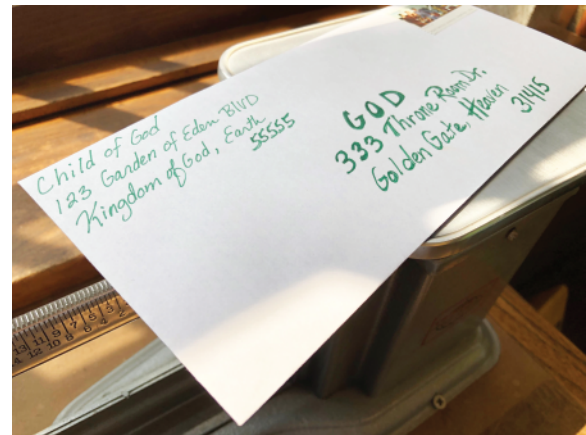 Child of God
123 Garden of Eden BLVD
Kingdom of God, Earth
55555
GOD
333 Throne Room Dr.
Golden Gate, Heaven
31415